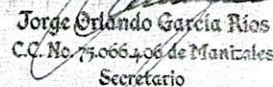 Jorge Orlando García Ríos
C.C. No. 75.066.406 de Manizales
Secretario